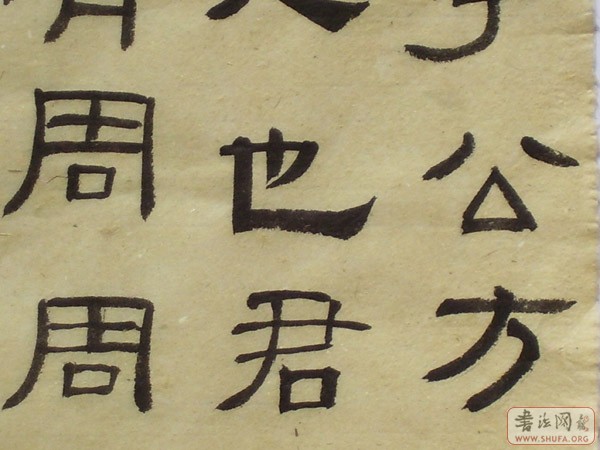 公方
也君
周周
書法网
WWW.SHUFA.ORG